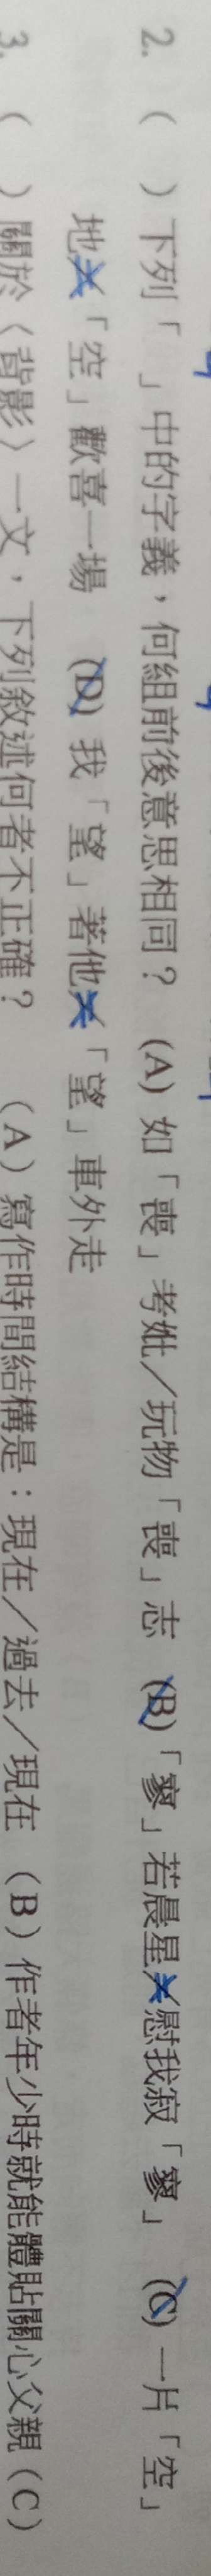 2. (　　) 下列「　」中的字義，何組前後意思相同？　(A) 如「喪」考妣／玩物「喪」志　(B)「寥」若晨星／慰我寂「寥」　(C) 一片「空」
地／「空」歡喜一場　(D) 我「望」著他／「望」車外走
3. (　　) 關於〈背影〉一文，下列敘述何者不正確？　（A）寫作時間結構是：現在／過去／現在　（B）作者年少時就能體貼關心父親（C）